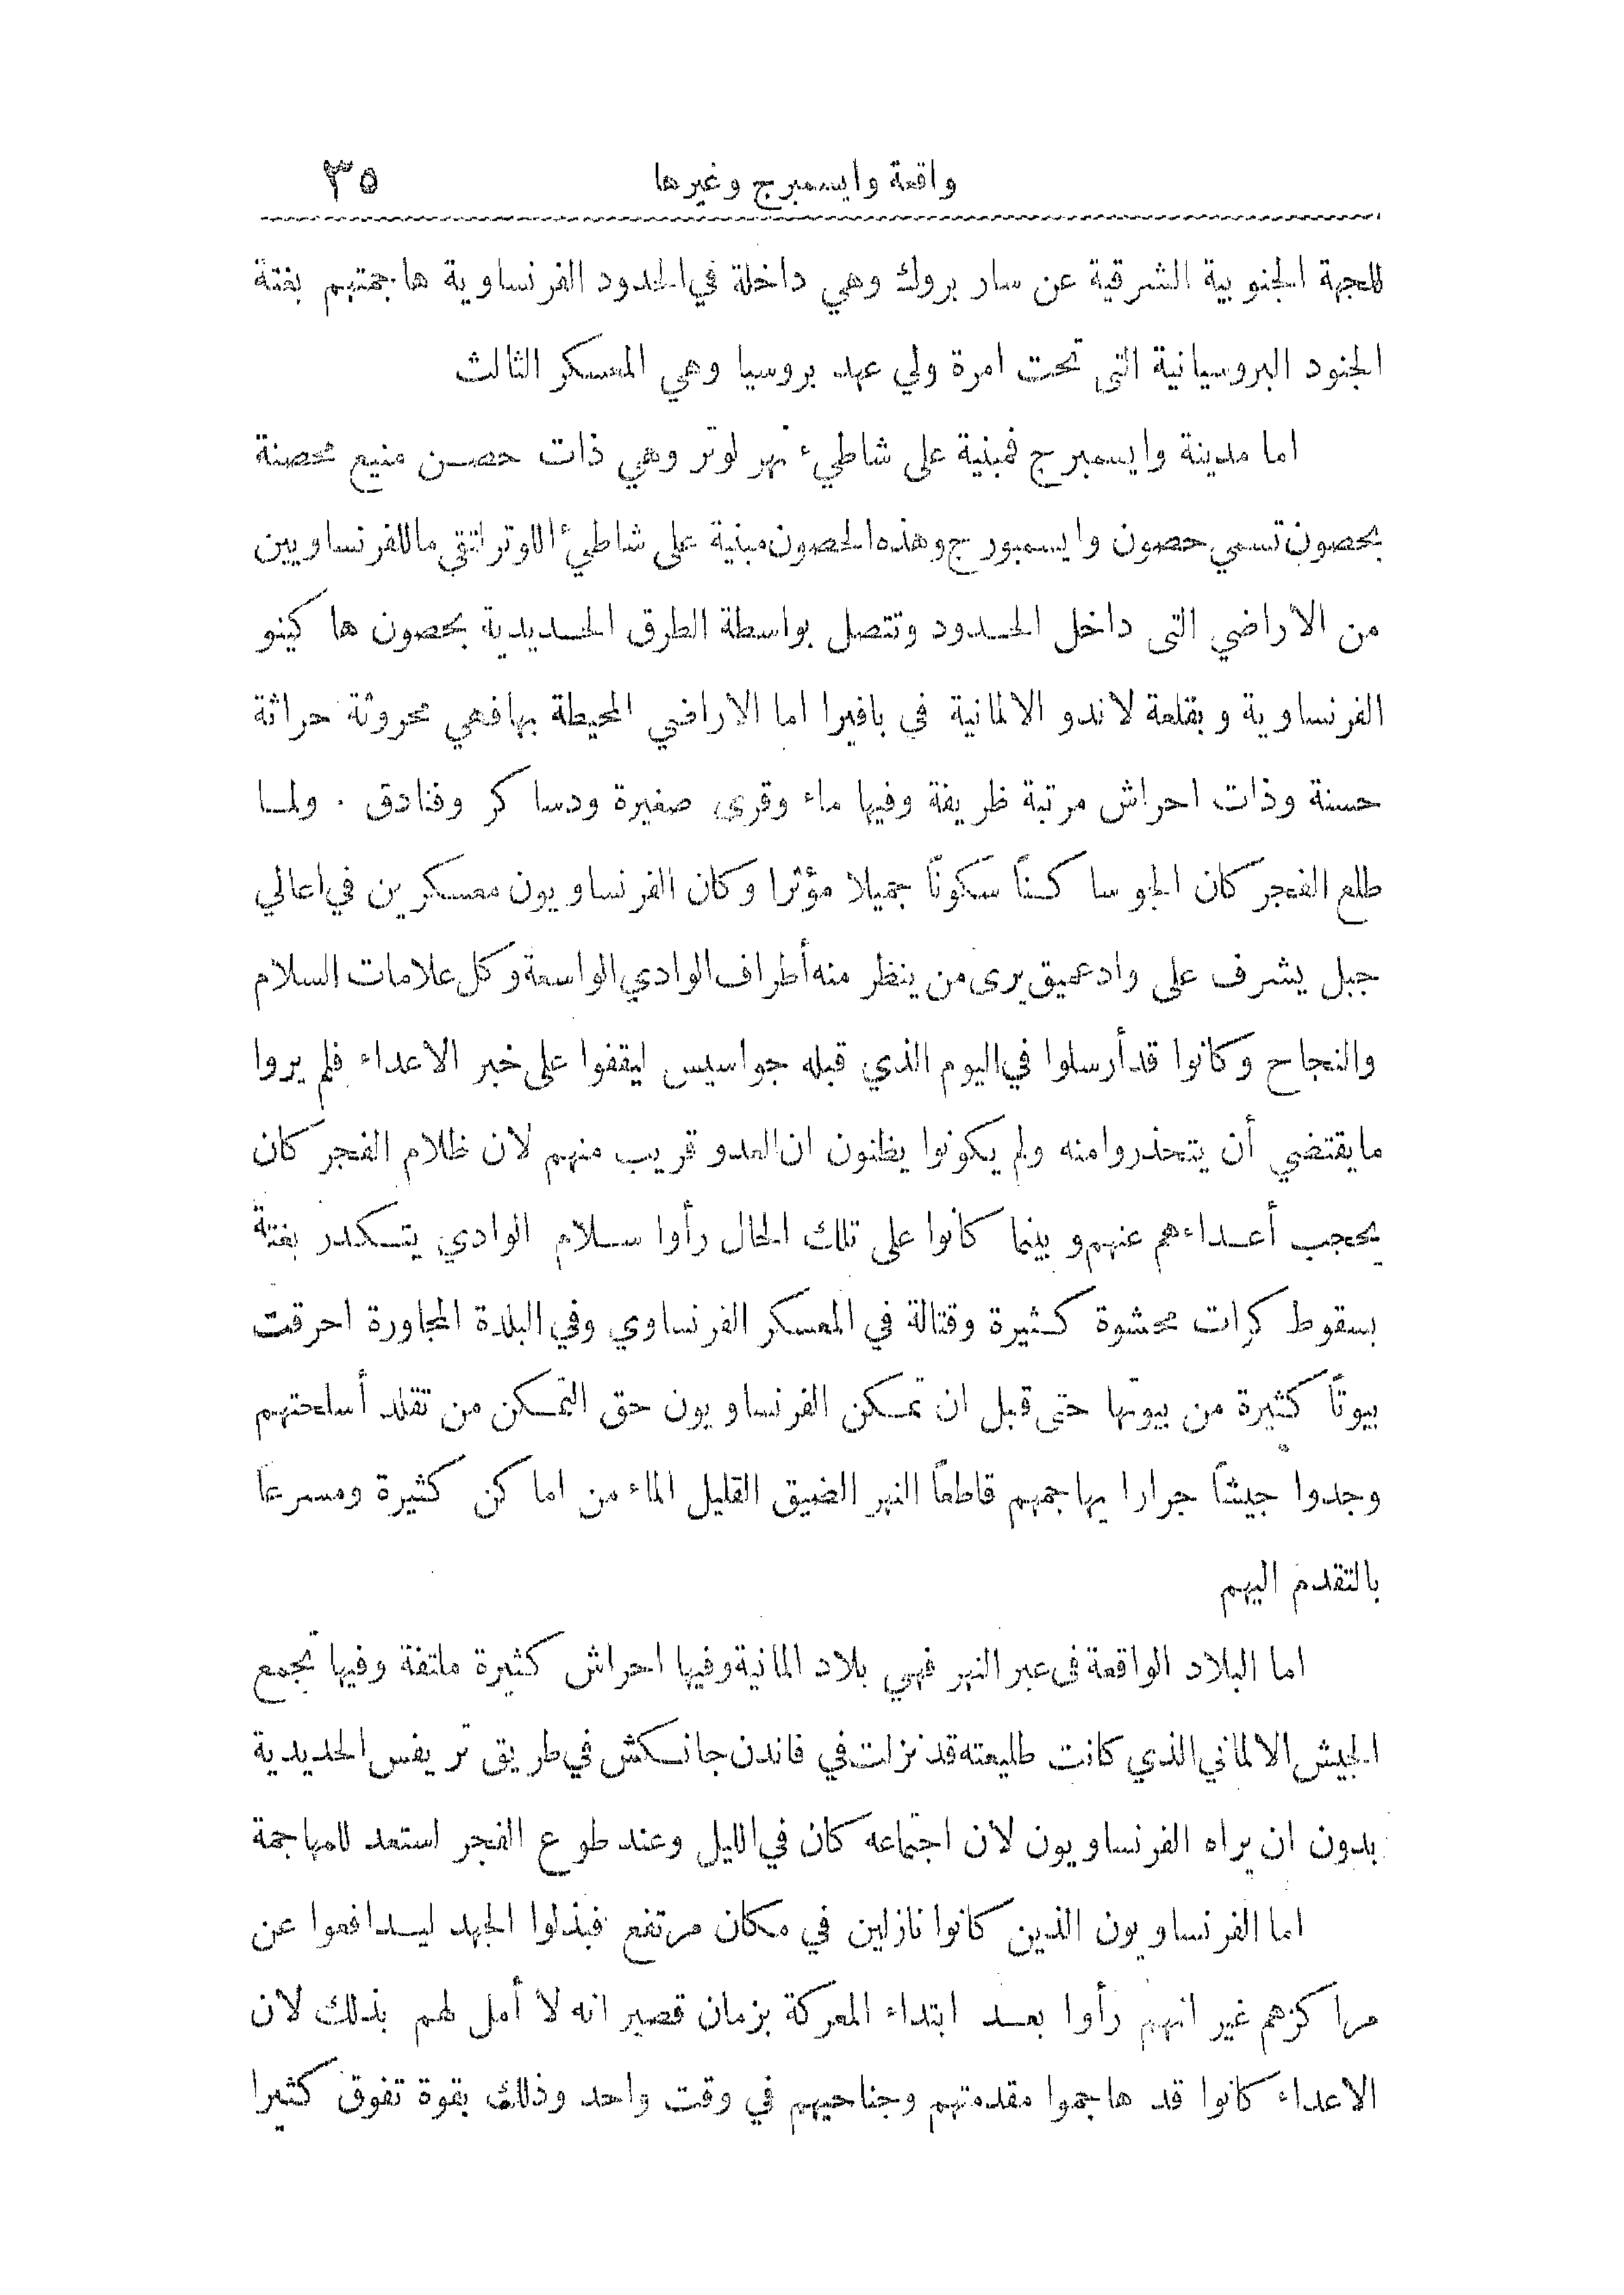 واقعة وايسمبرج وغيرها ٣٥
للجهة الجنوبية الشرقية عن سار بروك وهي داخلة في الحدود الفرنساوية هاجمتهم بغتة
الجنود البروسيانية التى تحت امرة ولي عهد بروسيا وهي المعسكر الثالث
اما مدينة وايسمبرج فمبنية على شاطيء نهر لوتر وهي ذات حصن منيع محصنة
بحصون تسمي حصون وايسمبورج وهذه الحصون مبنية على شاطيء اللوتر لتقي ما للفرنساويين
من الاراضي التى داخل الحدود وتتصل بواسطة الطرق الحديدية بحصون هاكينو
الفرنساوية وبقلعة لاندو الالمانية في بافيرا اما الاراضي المحيطة بها فهي محروثة حراثة
حسنة وذات احراش مرتبة ظريفة وفيها ماء وقرى صغيرة ودساكر وفنادق . ولما
طلع الفجر كان الجو ساكنًا سكونًا جميلا مؤثرا وكان الفرنساويون معسكرين في اعالي
جبل يشرف على واد عميق يرى من ينظر منه أطراف الوادي الواسعة وكل علامات السلام
والنجاح وكانوا قد أرسلوا في اليوم الذي قبله جواسيس ليقفوا على خبر الاعداء فلم يروا
ما يقتضي أن يتحذروا منه ولم يكونوا يظنون ان العدو قريب منهم لان ظلام الفجر كان
يحجب أعداءهم عنهم وبينما كانوا على تلك الحال رأوا سلام الوادي يتكدر بغتة
بسقوط كرات محشوة كثيرة وقتالة في المعسكر الفرنساوي وفي البلدة المجاورة احرقت
بيوتًا كثيرة من بيوتها حتى قبل ان تمكن الفرنساويون حق التمكن من تقلد أسلحتهم
وجدوا جيشًا جرارا يهاجمهم قاطعًا النهر الضيق القليل الماء من اماكن كثيرة ومسرعًا
بالتقدم اليهم
اما البلاد الواقعة فى عبر النهر فهي بلاد المانية وفيها احراش كثيرة ملتفة وفيها تجمع
الجيش الالماني الذي كانت طليعته قد نزلت في فاندن جانكش في طريق تريفس الحديدية
بدون ان يراه الفرنساويون لان اجتماعه كان في الليل وعند طوع الفجر استعد للمهاجمة
اما الفرنساويون الذين كانوا نازلين في مكان مرتفع فبذلوا الجهد ليدافعوا عن
مراكزهم غير انهم رأوا بعد ابتداء المعركة بزمان قصير انه لا أمل لهم بذلك لان
الاعداء كانوا قد هاجموا مقدمتهم وجناحيهم في وقت واحد وذلك بقوة تفوق كثيرا